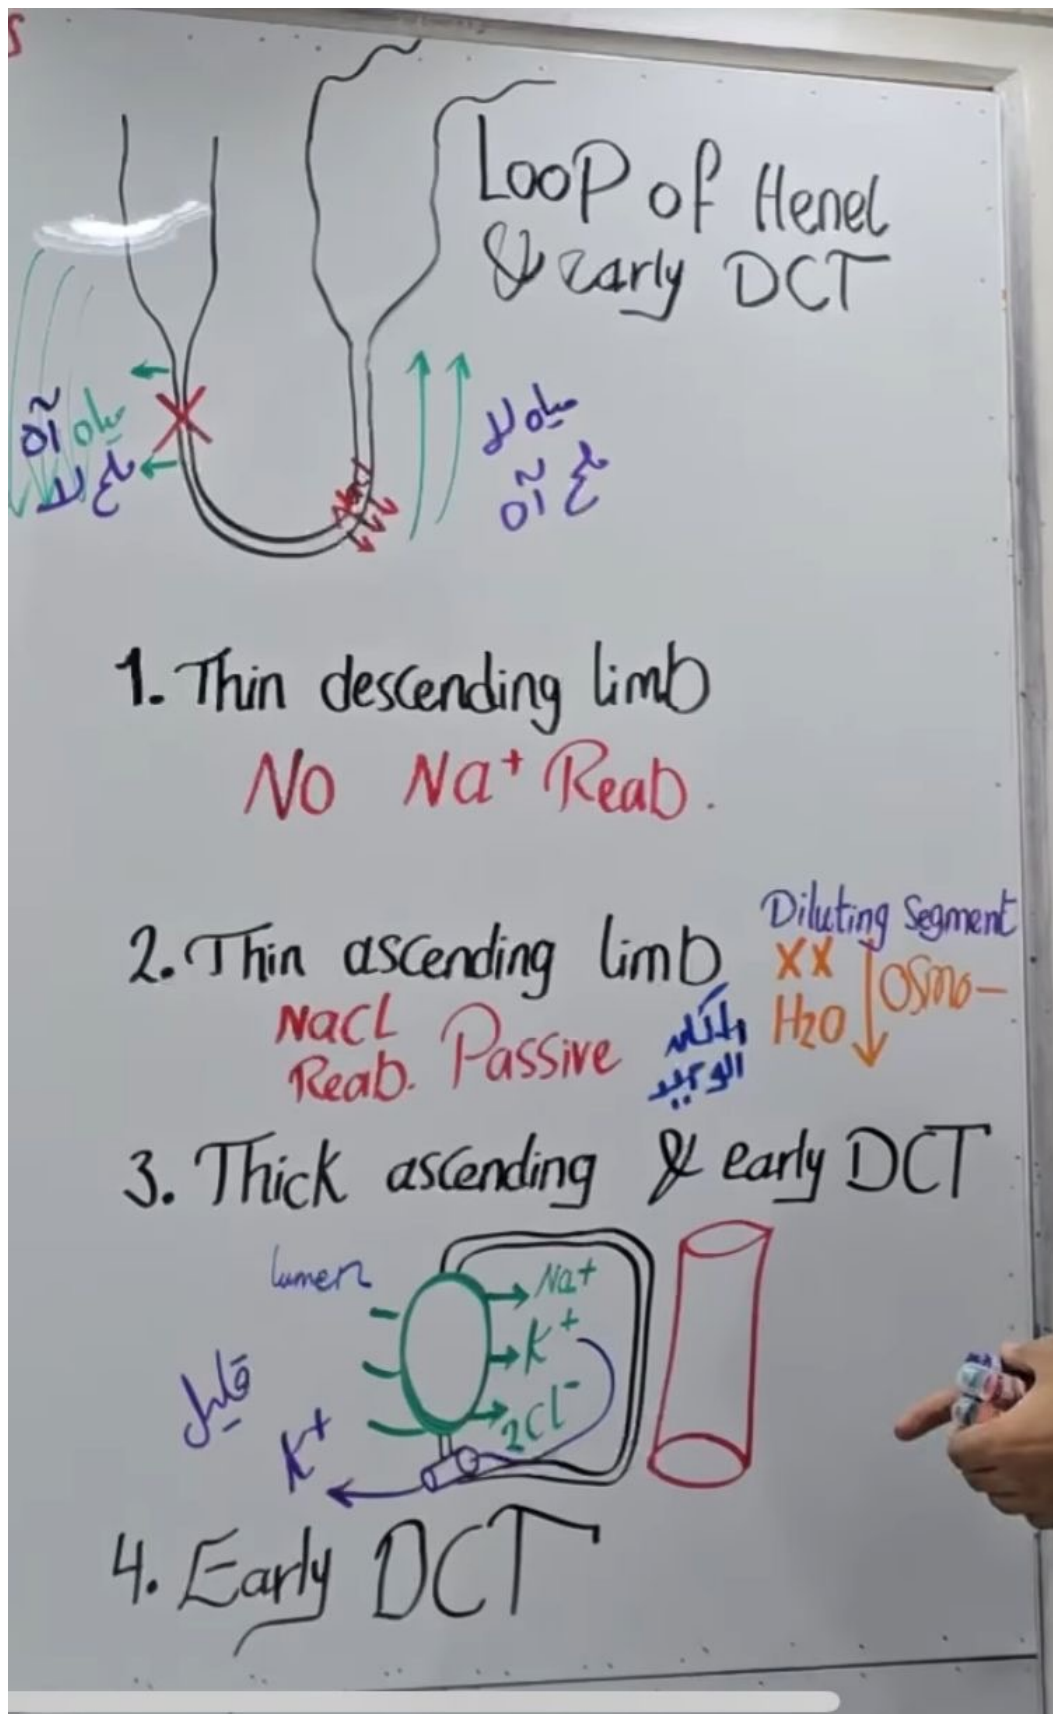 S
Loop of Henel
& Early DCT
مياه آه
ملح لا
مياه لا
ملح آه
1. Thin descending limb
No Na⁺ Reab.
Diluting Segment
2. Thin ascending limb
XX
H2O
Osmo-
NaCl
Reab. Passive
المكان
الوحيد
3. Thick ascending & early DCT
lumen
Na⁺
K⁺
2Cl⁻
K⁺
4. Early DCT